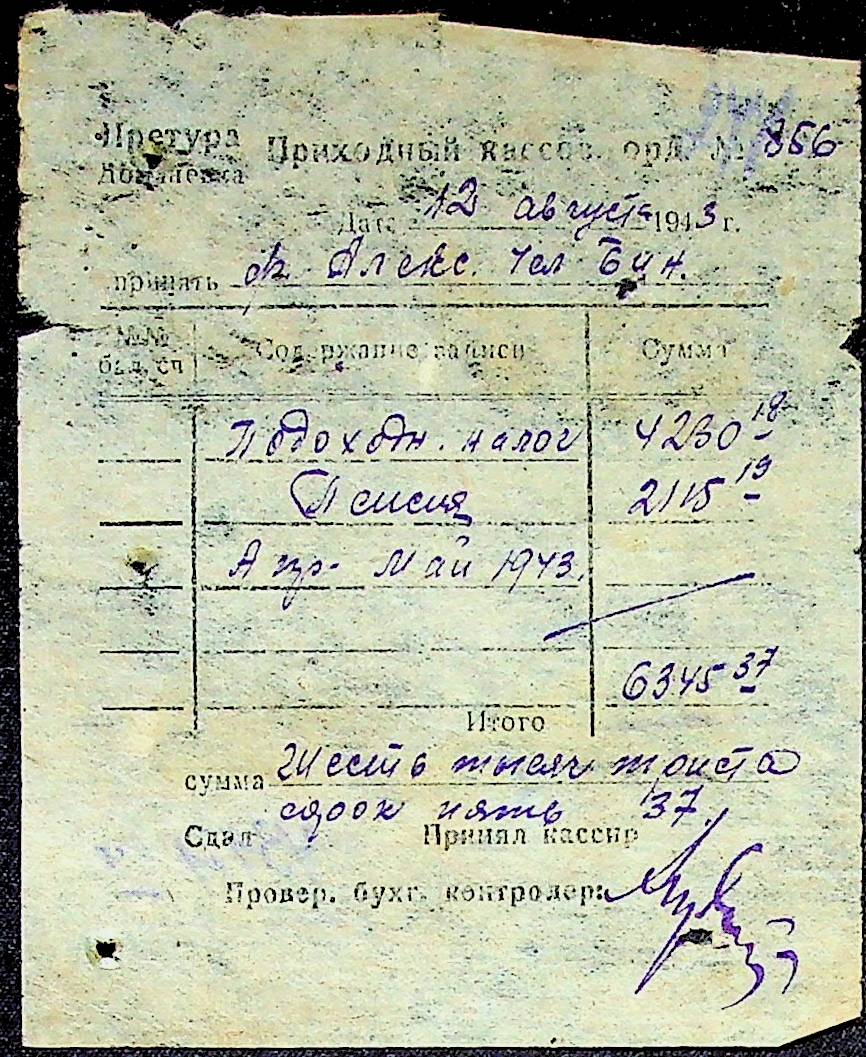 Претура Приходный кассов. орд. № 856
Доманевка
Дата 12 августа 1943 г.
принять Алекс.
№№ бал. сч Содержание записи Сумма
Подоходн. налог 4230 18
Пенсия 2115 19
Апр- Май 1943.
6345 37
Итого
сумма Шесть тысяч триста
сорок пять 37.
Сдал Принял кассир
Провер. бухг. контролер